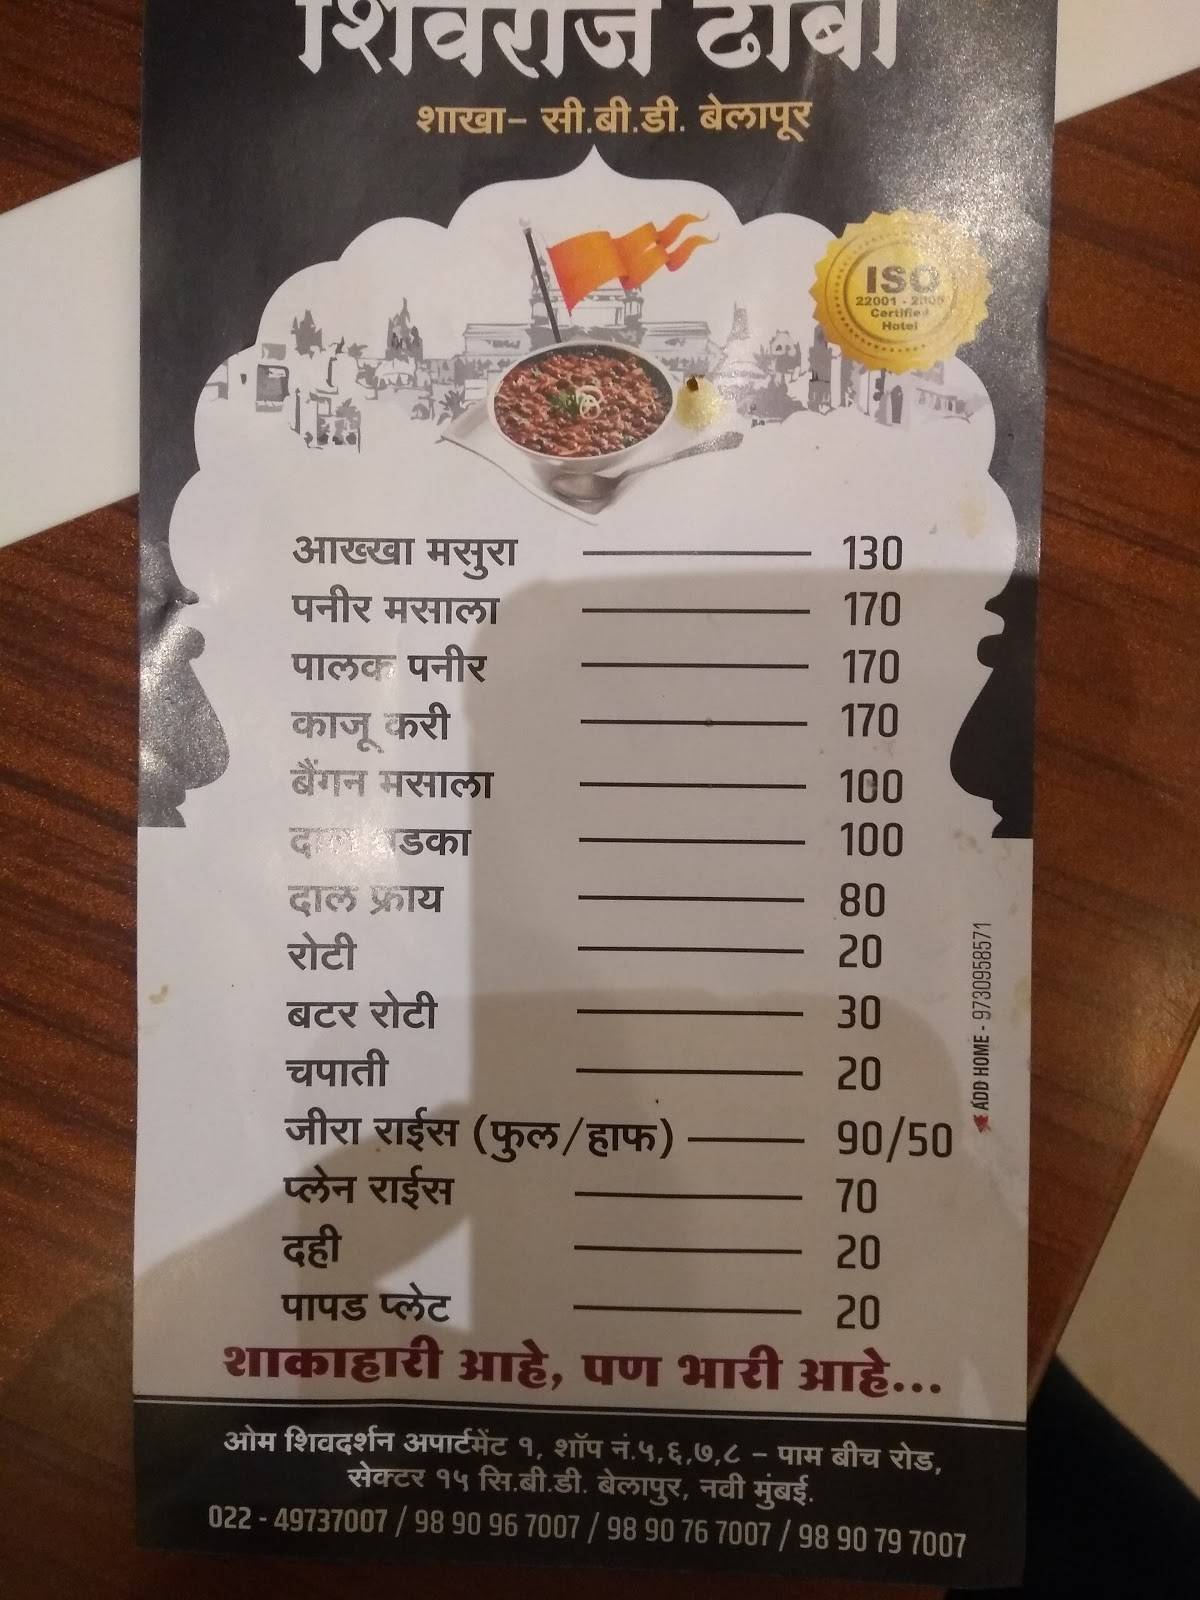 शिवराज ढाबा
शाखा– सी.बी.डी. बेलापूर
ISO
22001 - 2005
Certified
Hotel
आख्खा मसुरा 130
पनीर मसाला 170
पालक पनीर 170
काजू करी 170
बैंगन मसाला 100
दाल तडका 100
दाल फ्राय 80
रोटी 20
बटर रोटी 30
चपाती 20
जीरा राईस (फुल/हाफ) 90/50
प्लेन राईस 70
दही 20
पापड प्लेट 20
ADD HOME - 9730958571
शाकाहारी आहे, पण भारी आहे...
ओम शिवदर्शन अपार्टमेंट १, शॉप नं.५,६,७,८ – पाम बीच रोड,
सेक्टर १५ सि.बी.डी. बेलापुर, नवी मुंबई.
022 - 49737007 / 98 90 96 7007 / 98 90 76 7007 / 98 90 79 7007